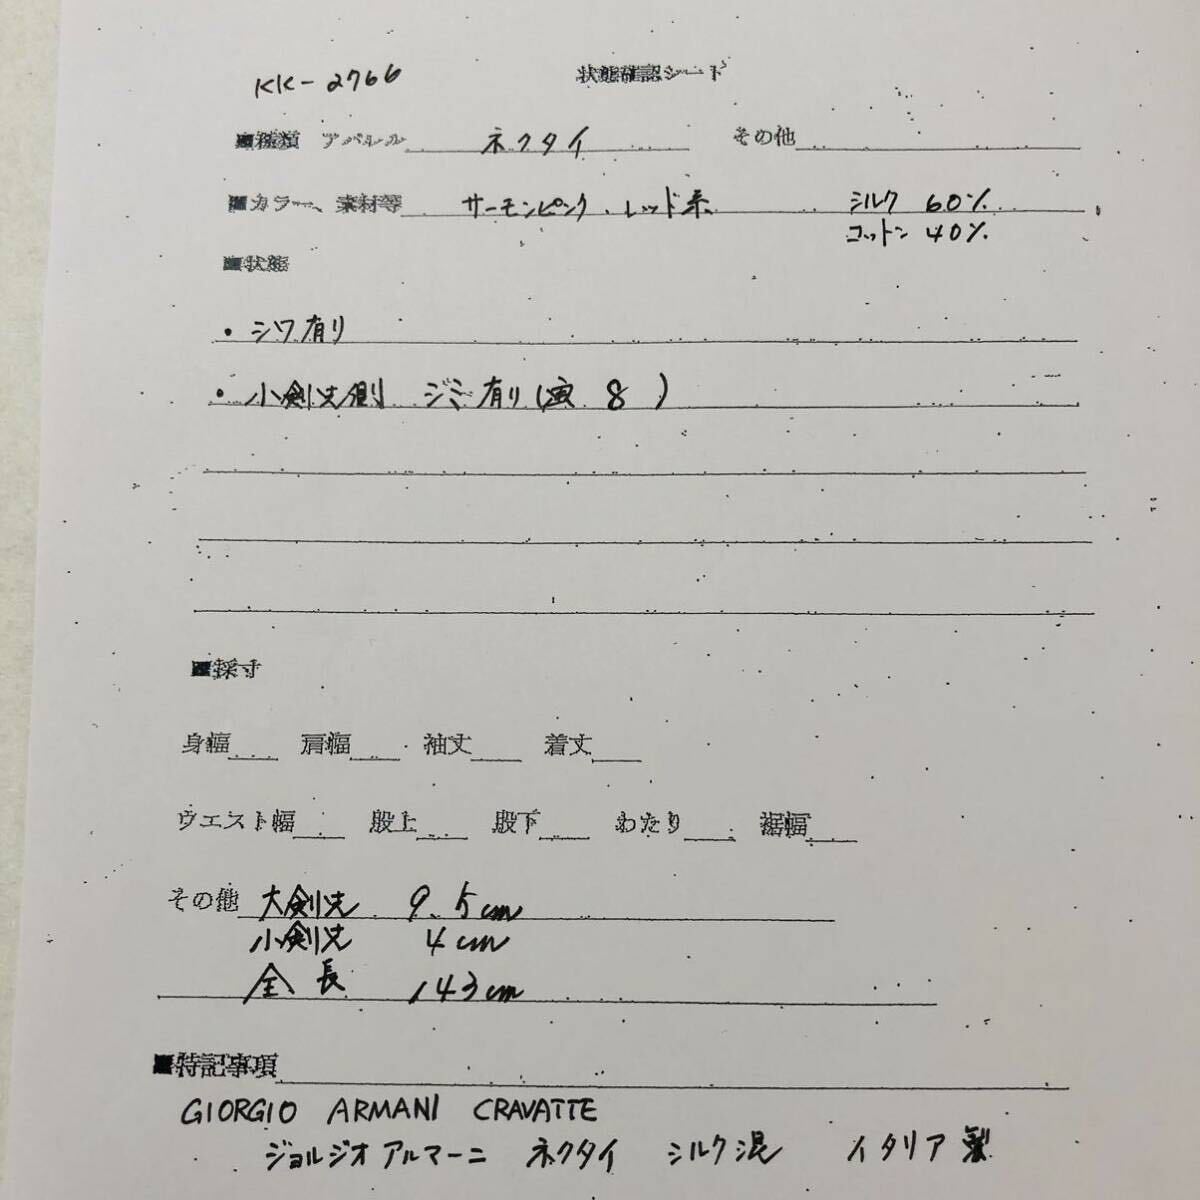 KK-2766 状態確認シート
■種類 アパレル ネクタイ その他
■カラー、素材等 サーモンピンク、レッド系 シルク 60%
コットン 40%
■状態
・シワ有り
・小剣先側 シミ有り(写 8 )
■採寸
身幅 肩幅 袖丈 着丈
ウエスト幅 股上 股下 わたり 裾幅
その他 大剣先 9.5cm
小剣先 4cm
全長 143cm
■特記事項
GIORGIO ARMANI CRAVATTE
ジョルジオアルマーニ ネクタイ シルク混 イタリア製